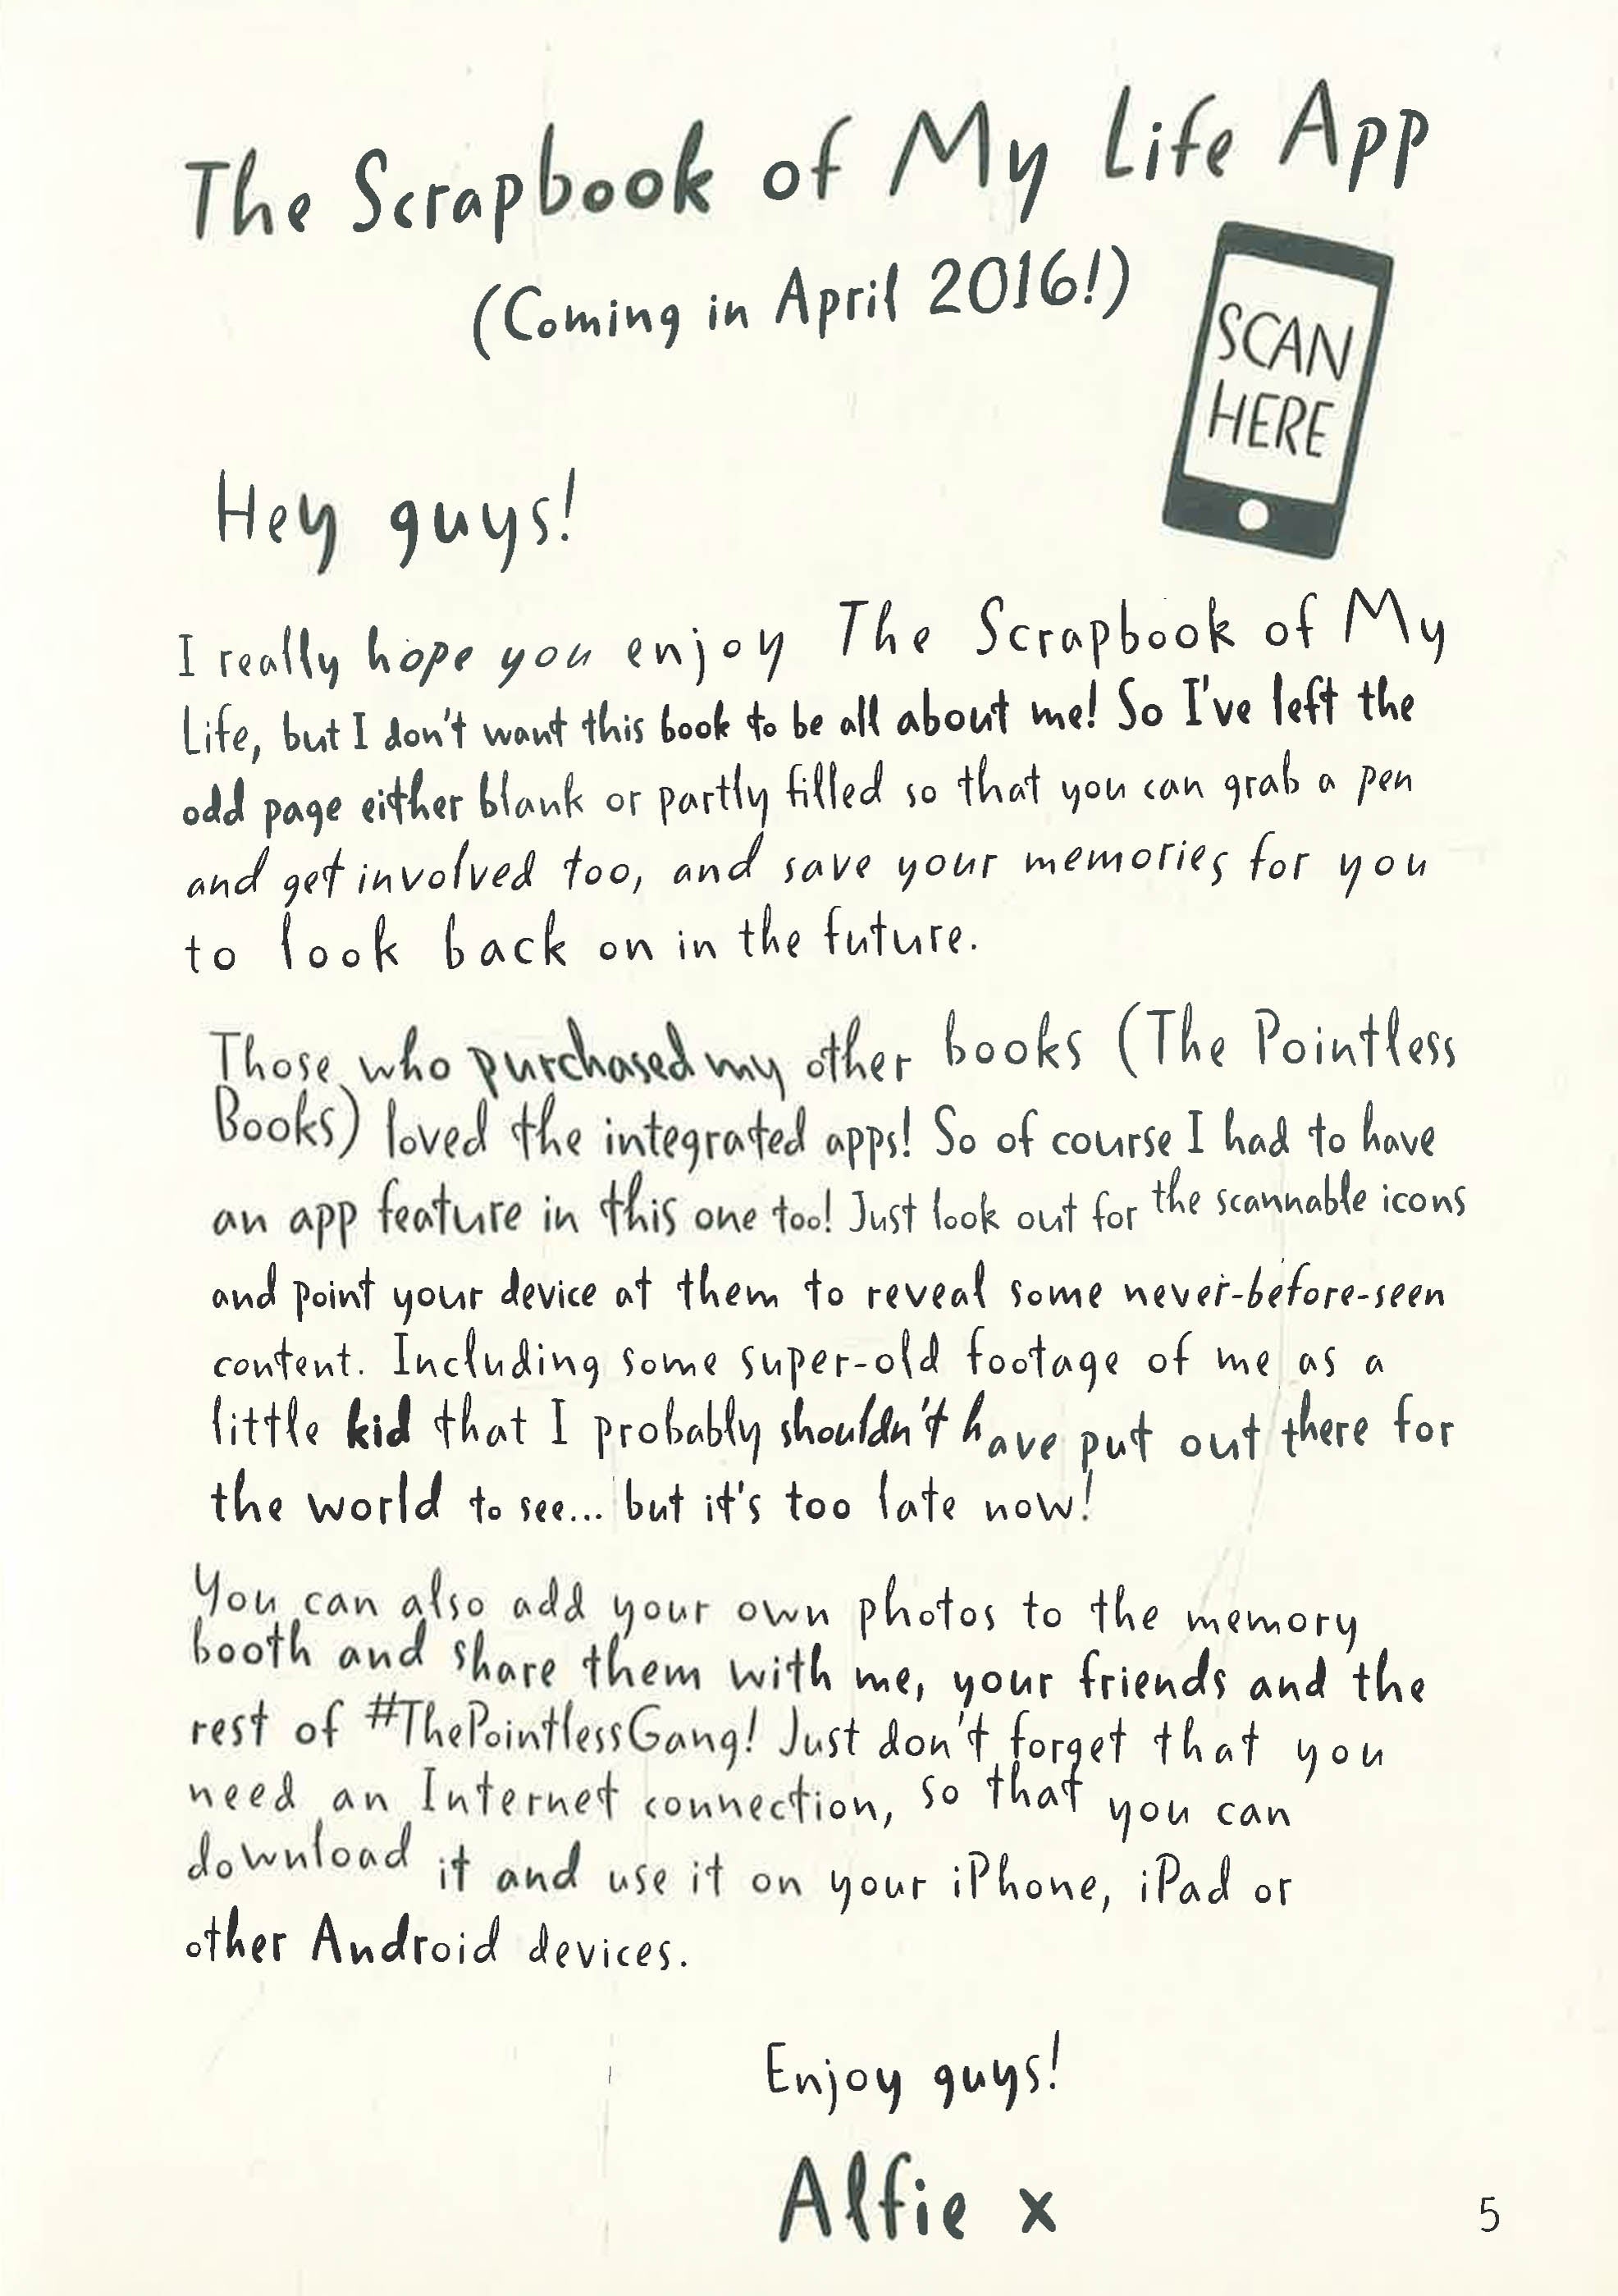 The Scrapbook of My Life App
(Coming in April 2016!)
SCAN
HERE
Hey guys!
I really hope you enjoy The Scrapbook of My
Life, but I don't want this book to be all about me! So I've left the
odd page either blank or partly filled so that you can grab a pen
and get involved too, and save your memories for you
to look back on in the future.
Those who purchased my other books (The Pointless
Books) loved the integrated apps! So of course I had to have
an app feature in this one too! Just look out for the scannable icons
and point your device at them to reveal some never-before-seen
content. Including some super-old footage of me as a
little kid that I probably shouldn't have put out there for
the world to see... but it's too late now!
You can also add your own photos to the memory
booth and share them with me, your friends and the
rest of #ThePointlessGang! Just don't forget that you
need an Internet connection, so that you can
download it and use it on your iPhone, iPad or
other Android devices.
Enjoy guys!
Alfie x
5